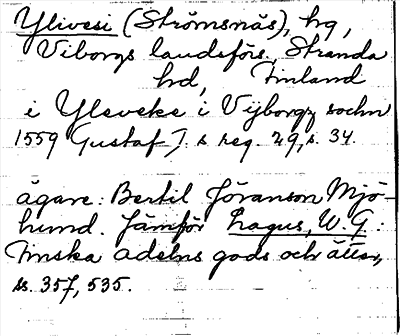 Ylivesi (Strömsnäs), hg,
Viborgs landsförs., Stranda
hd, Finland
i Yleveke i Vijborgz sochn
1559 Gustaf I. s reg. 29, s. 34.
ägare: Bertil Jöranson Mjö-
hund. Jämför Lagus, W. G:
Finska adelns gods och ätter,
ss. 357, 535.